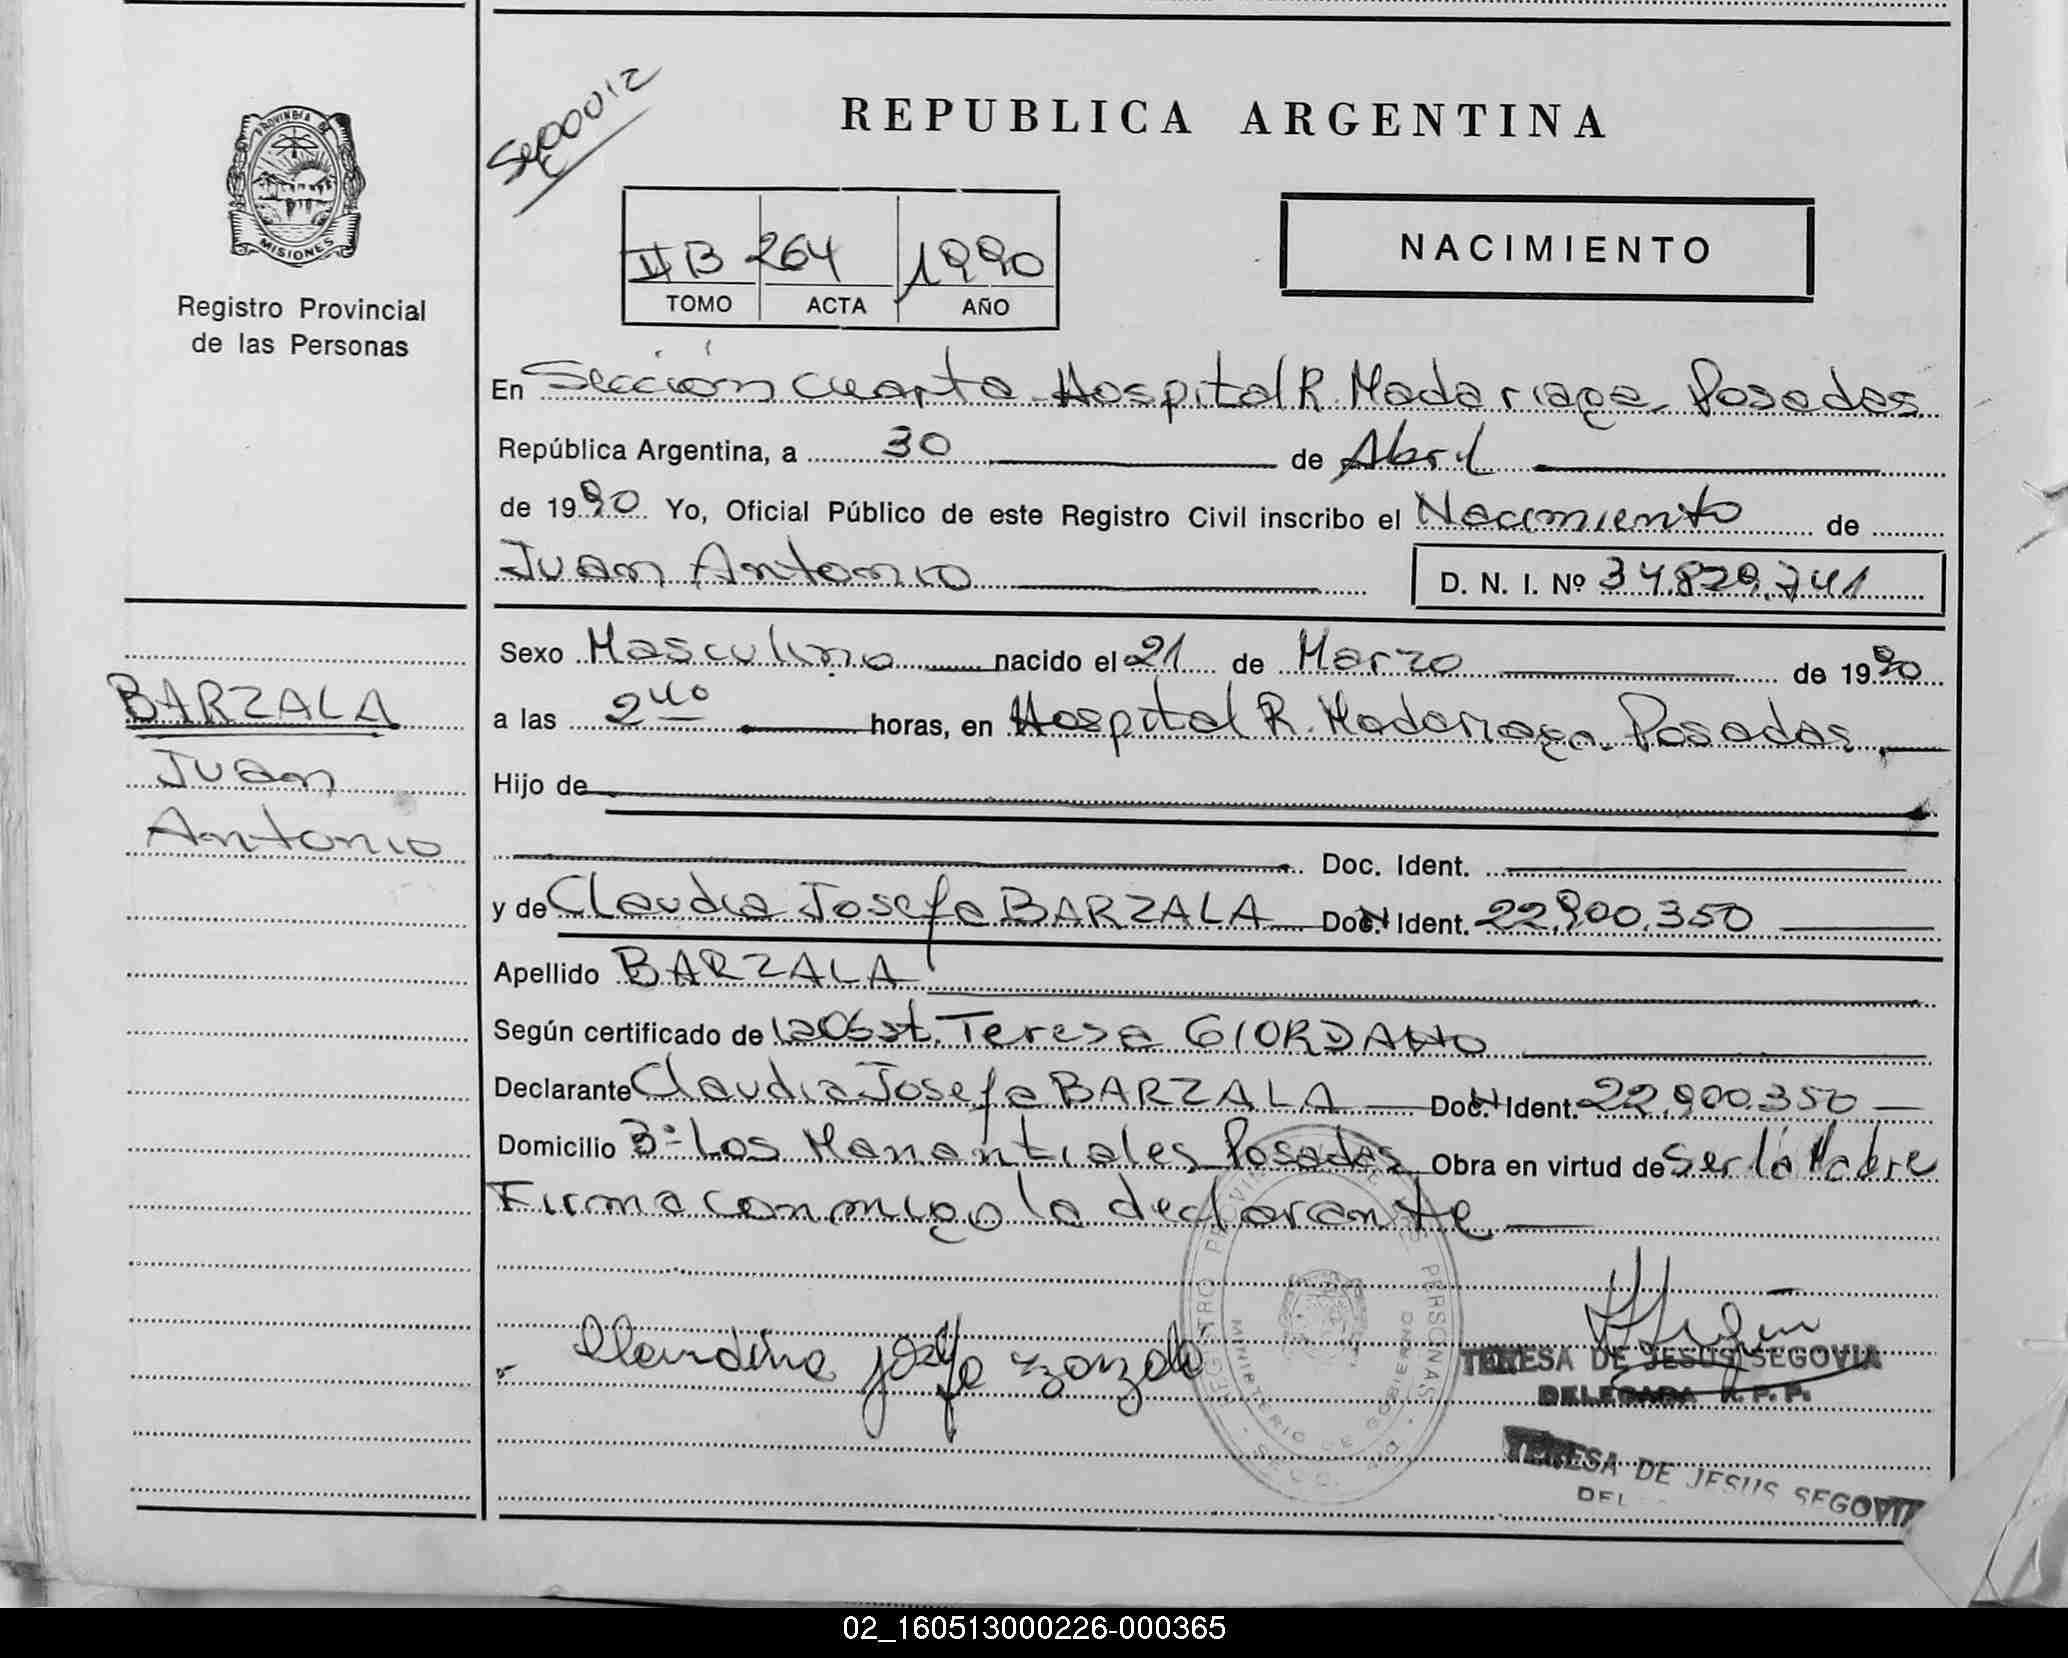 REPUBLICA ARGENTINA
PROVINCIA DE
MISIONES
Registro Provincial
de las Personas
II B 264 1990
TOMO ACTA AÑO
NACIMIENTO
En Sección cuarta Hospital R. Madariaga Posadas
República Argentina, a 30 de Abril
de 1990 Yo, Oficial Público de este Registro Civil inscribo el Nacimiento de
Juan Antonio D. N. I. Nº 34.829.741
Sexo Masculino nacido el 21 de Marzo de 1990
BARZALA
a las 2 40 horas, en Hospital R. Madariaga Posadas
Juan
Hijo de
Antonio
Doc. Ident.
y de Claudia Josefa BARZALA Doc. Ident. 22.900.350
Apellido BARZALA
Según certificado de la Obst. Teresa GIORDANO
Declarante Claudia Josefa BARZALA Doc. Ident. 22.900.350
Domicilio Bº Los Manantiales Posadas Obra en virtud de ser la Madre
Firma conmigo la declarante
TERESA DE JESUS SEGOVIA
DELEGADA R. P. P.
TERESA DE JESUS SEGOVIA
DEL
02_160513000226-000365